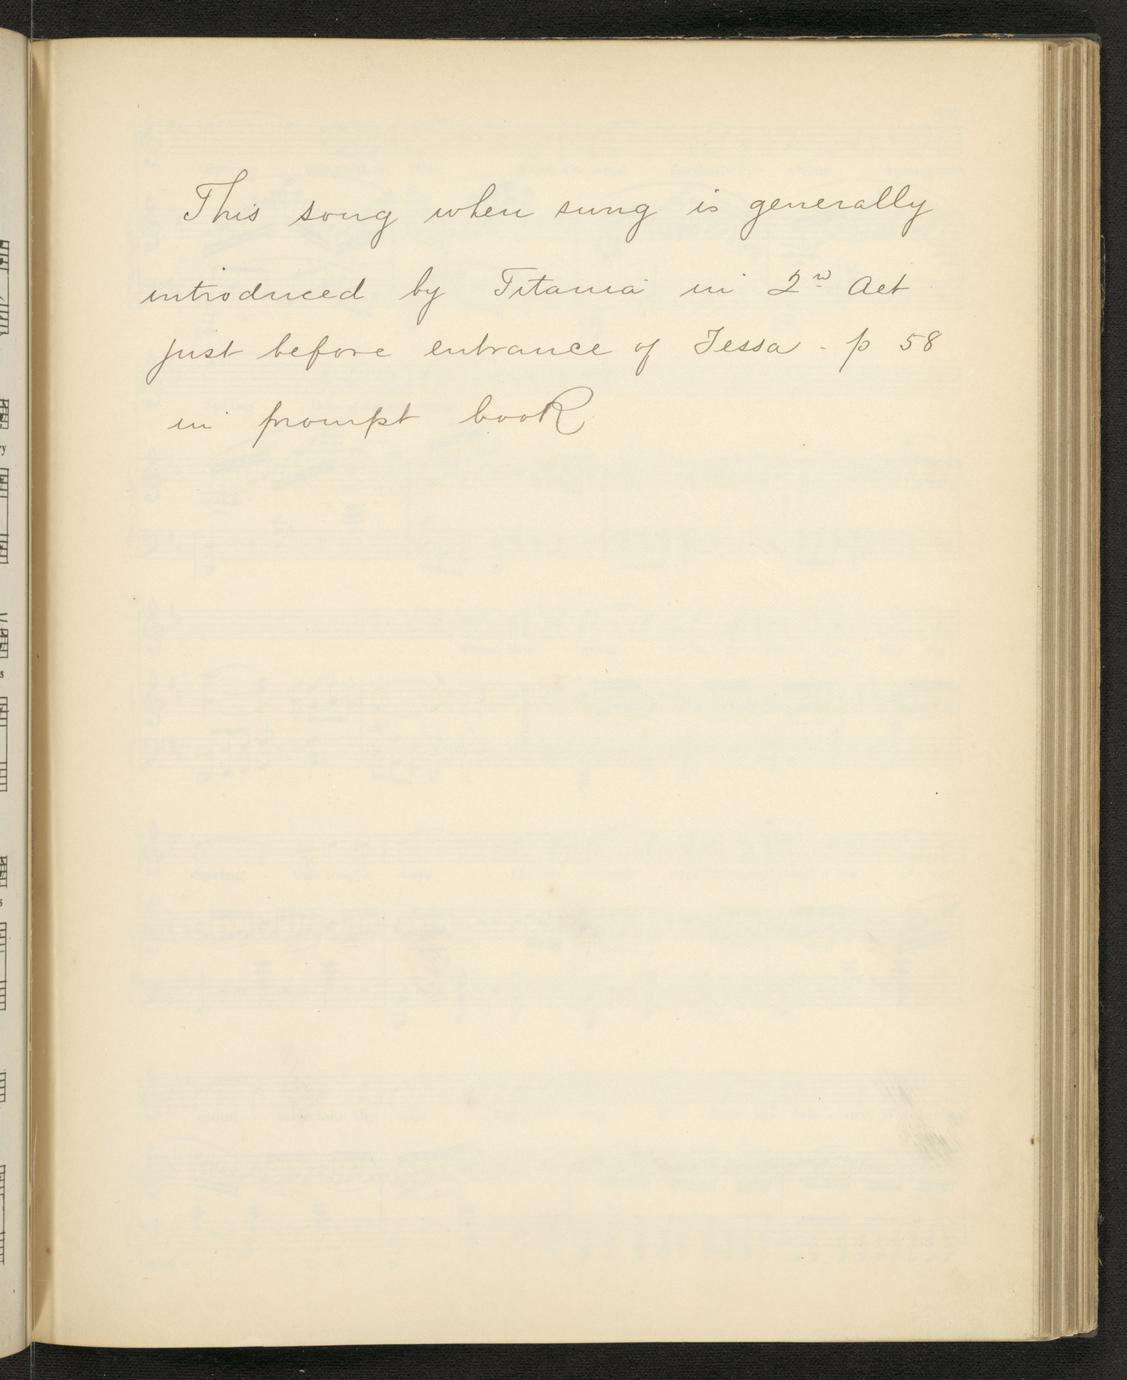 This song when sung is generally
introduced by Titania in 2nd Act
just before entrance of Tessa - p 58
in prompt book